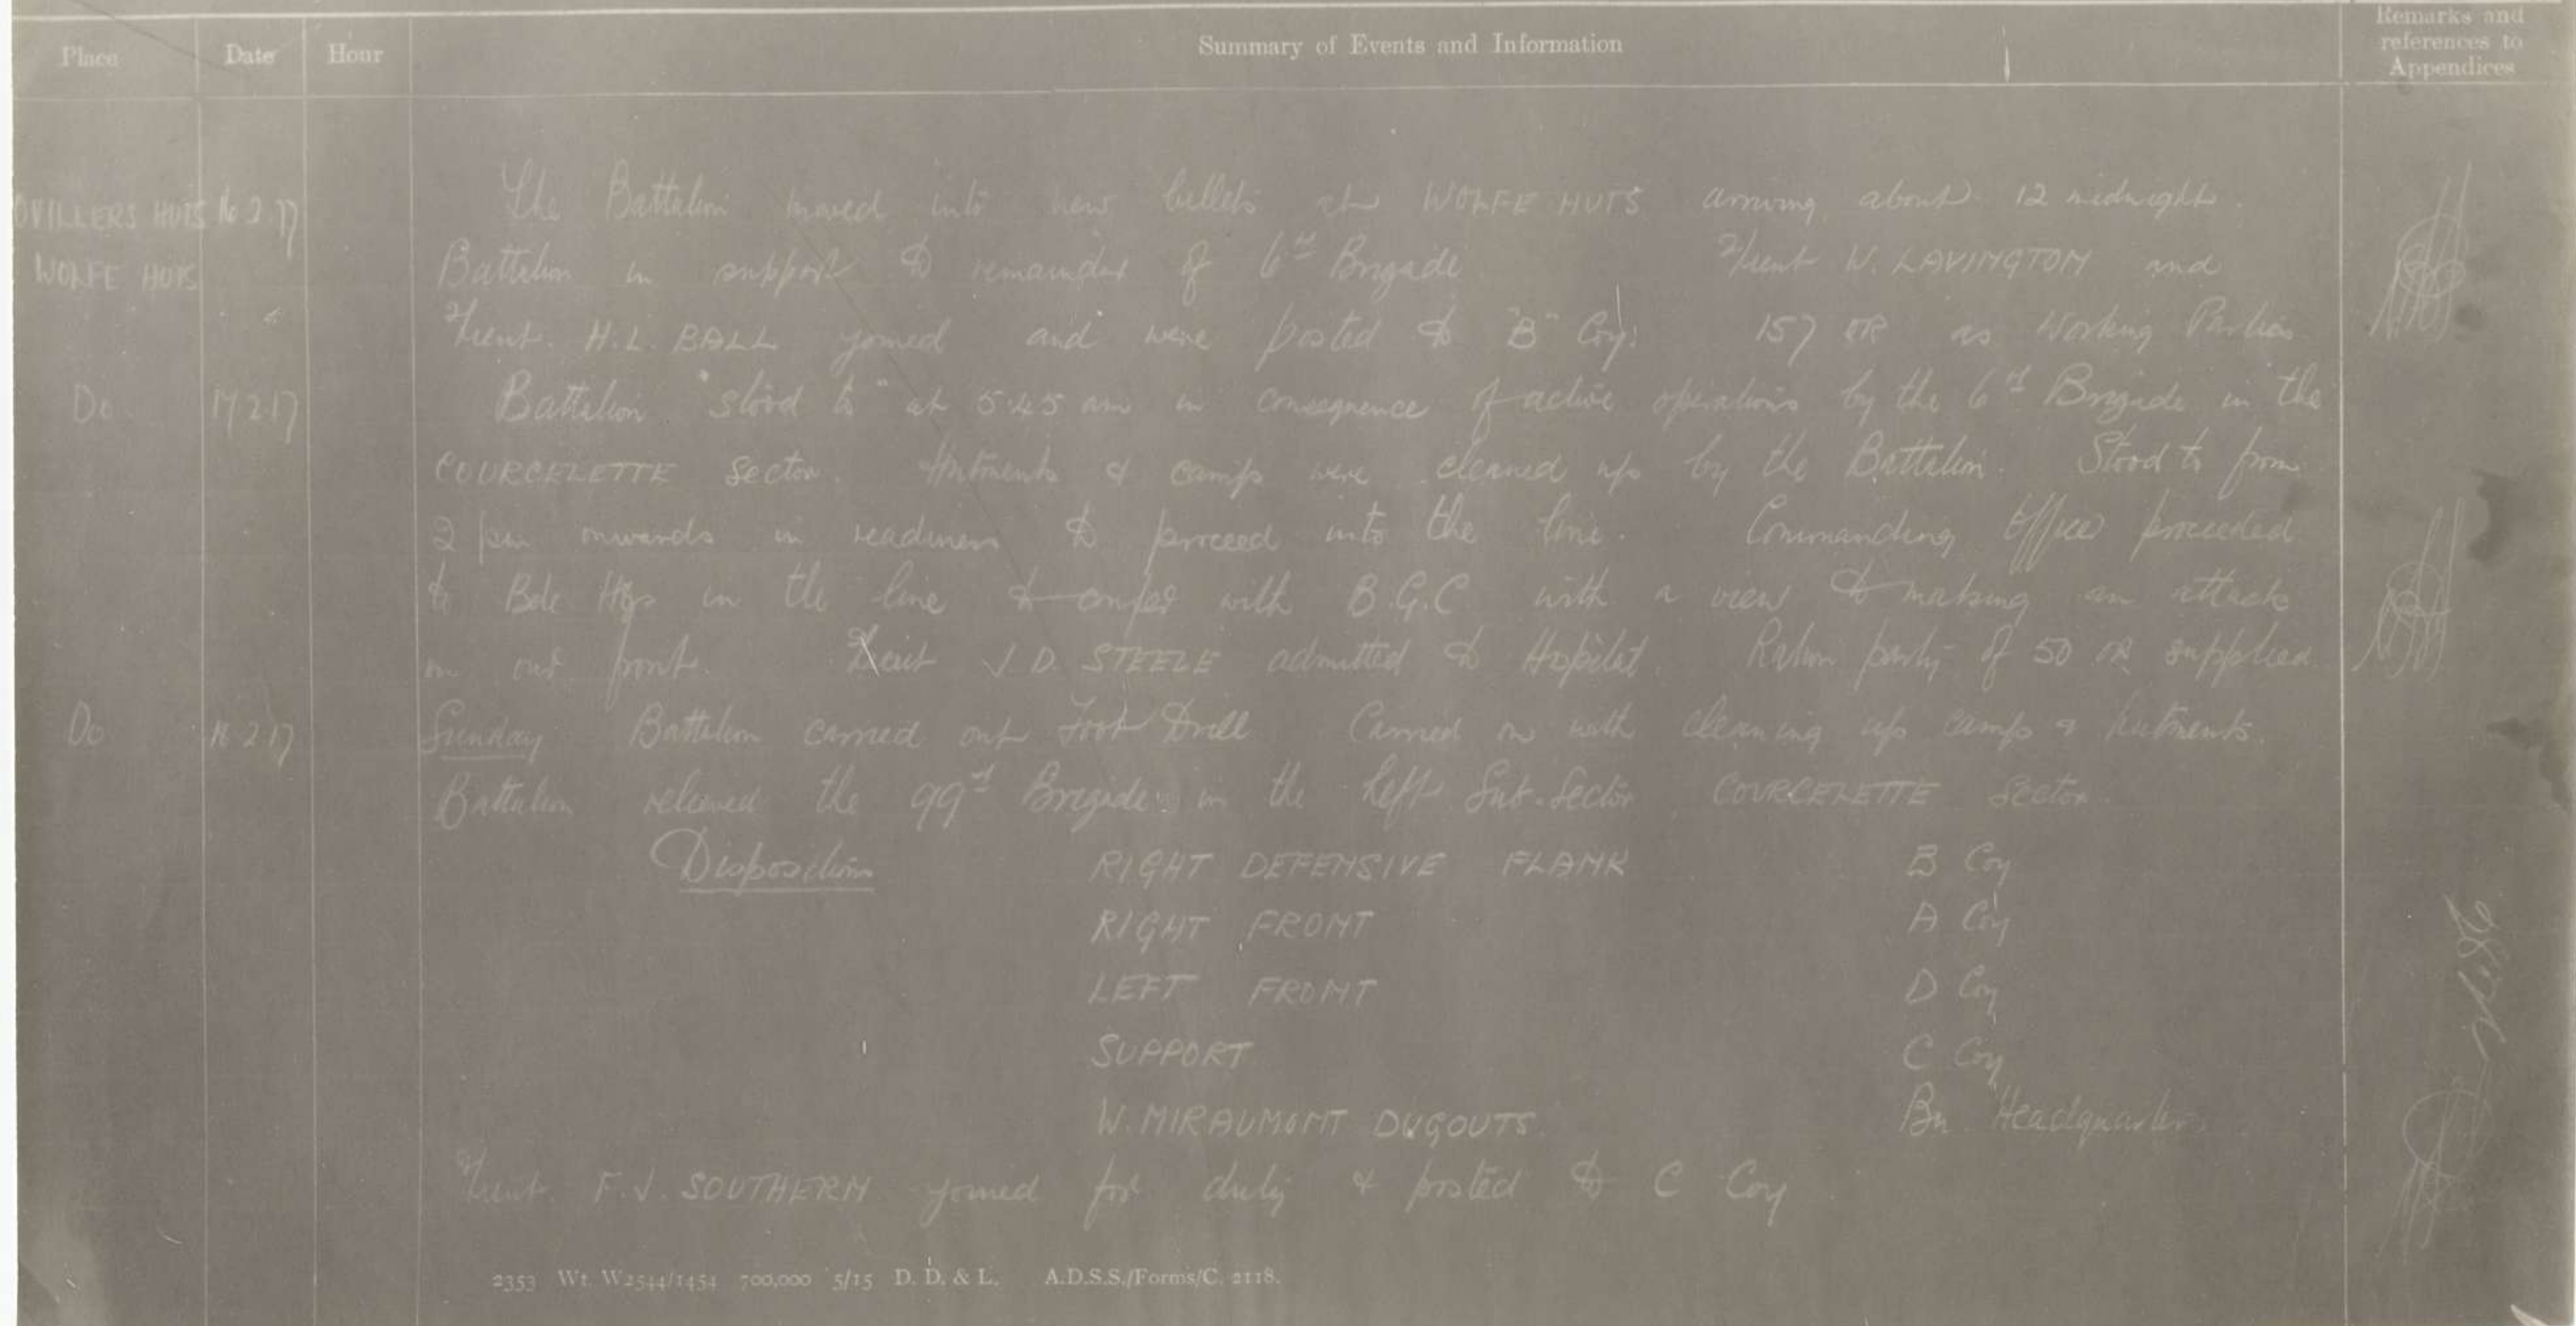 Place Date Hour Summary of Events and Information Remarks and references to Appendices
OVILLERS HUTS 16 2 17 The Battalion moved into new billets at WOLFE HUTS arriving about 12 midnight.
WOLFE HUTS Battalion in support to remainder of 6th Brigade 2/Lieut W. LAVINGTON and
2/Lieut. H.L. BALL joined and were posted to "B" Coy. 157 OR as Working Parties
Do 17 2 17 Battalion "stood to" at 5.45 am in consequence of active operations by the 6th Brigade in the
COURCELETTE Sector. Hutments & camp were cleaned up by the Battalion. Stood to from
2 pm onwards in readiness to proceed into the line. Commanding Officer proceeded
to Bde Hqs in the line to confer with B.G.C with a view to making an attack
on our front. Lieut J.D. STEELE admitted to Hospital. Ration party of 50 OR supplied
Do 18 2 17 Sunday Battalion carried out Foot Drill Carried on with cleaning up camp & hutments.
Battalion relieved the 99th Brigade in the Left Sub-Sector COURCELETTE Sector.
Dispositions RIGHT DEFENSIVE FLANK B Coy
RIGHT FRONT A Coy
LEFT FRONT D Coy
SUPPORT C Coy
W. MIRAUMONT DUGOUTS. Bn Headquarters
2/Lieut. F.J. SOUTHERN joined for duty & posted to C Coy
2353 Wt. W2544/1454 700,000 5/15 D. D. & L. A.D.S.S./Forms/C. 2118.